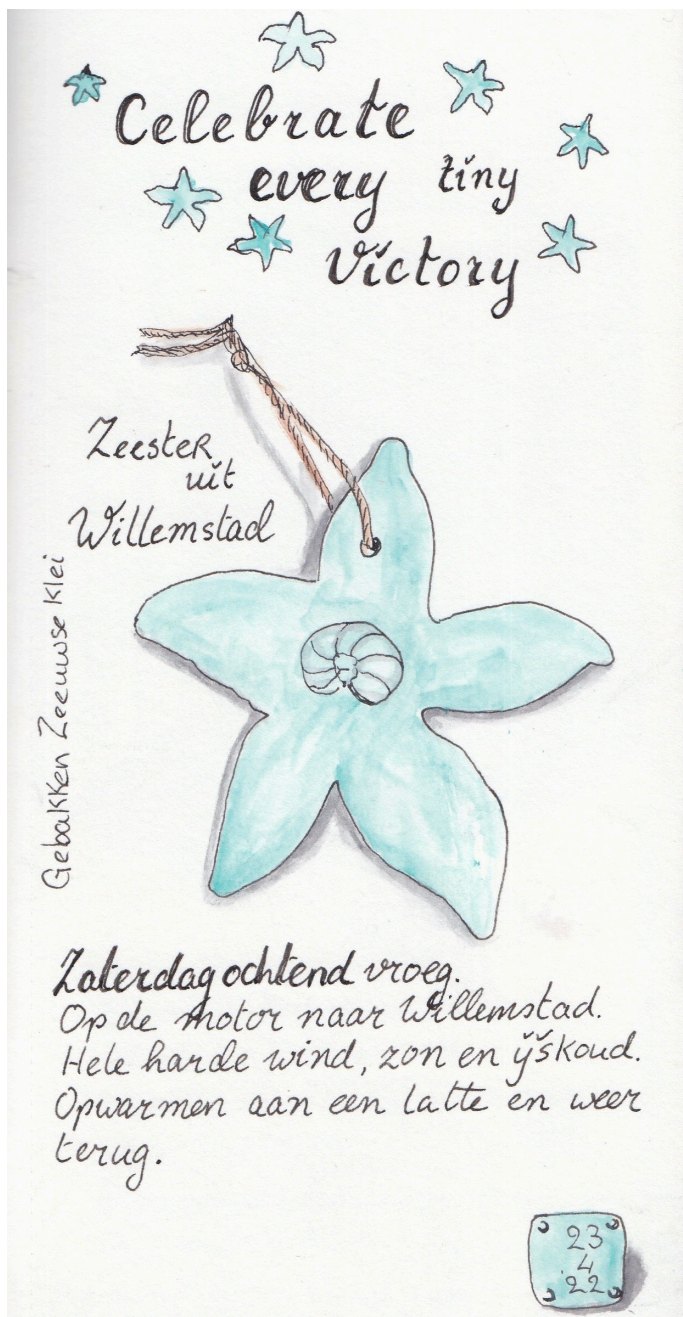 Celebrate
every tiny
Victory
Zeester
uit
Willemstad
Gebakken Zeeuwse Klei
Zaterdagochtend vroeg.
Op de motor naar Willemstad.
Hele harde wind, zon en ijskoud.
Opwarmen aan een latte en weer
terug.
23
4
22